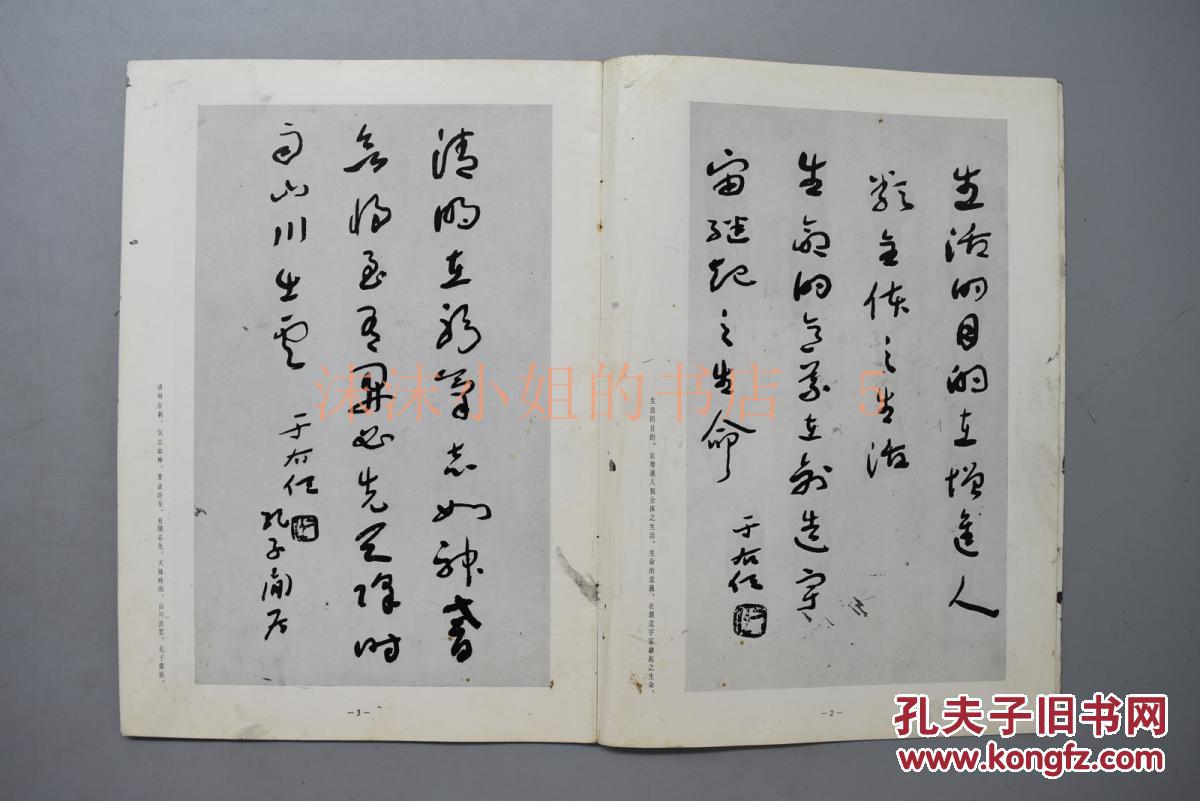 生活的目的在增進人
類全体之生活
生命的意義在創造宇
宙繼起之生命
于右任
生活的目的，在增進人類全体之生活。生命的意義，在創造宇宙繼起之生命。
—2—
清明在躬氣志如神耆
欲將至有開必先天降時
雨山川出雲
于右任
孔子閒居
清明在躬，気志如神。耆欲將至，有開必先，天降時雨，山川出雲。孔子閒居。
—3—
沫沫小姐的书店 5
孔夫子旧书网
KONGFZ.COM